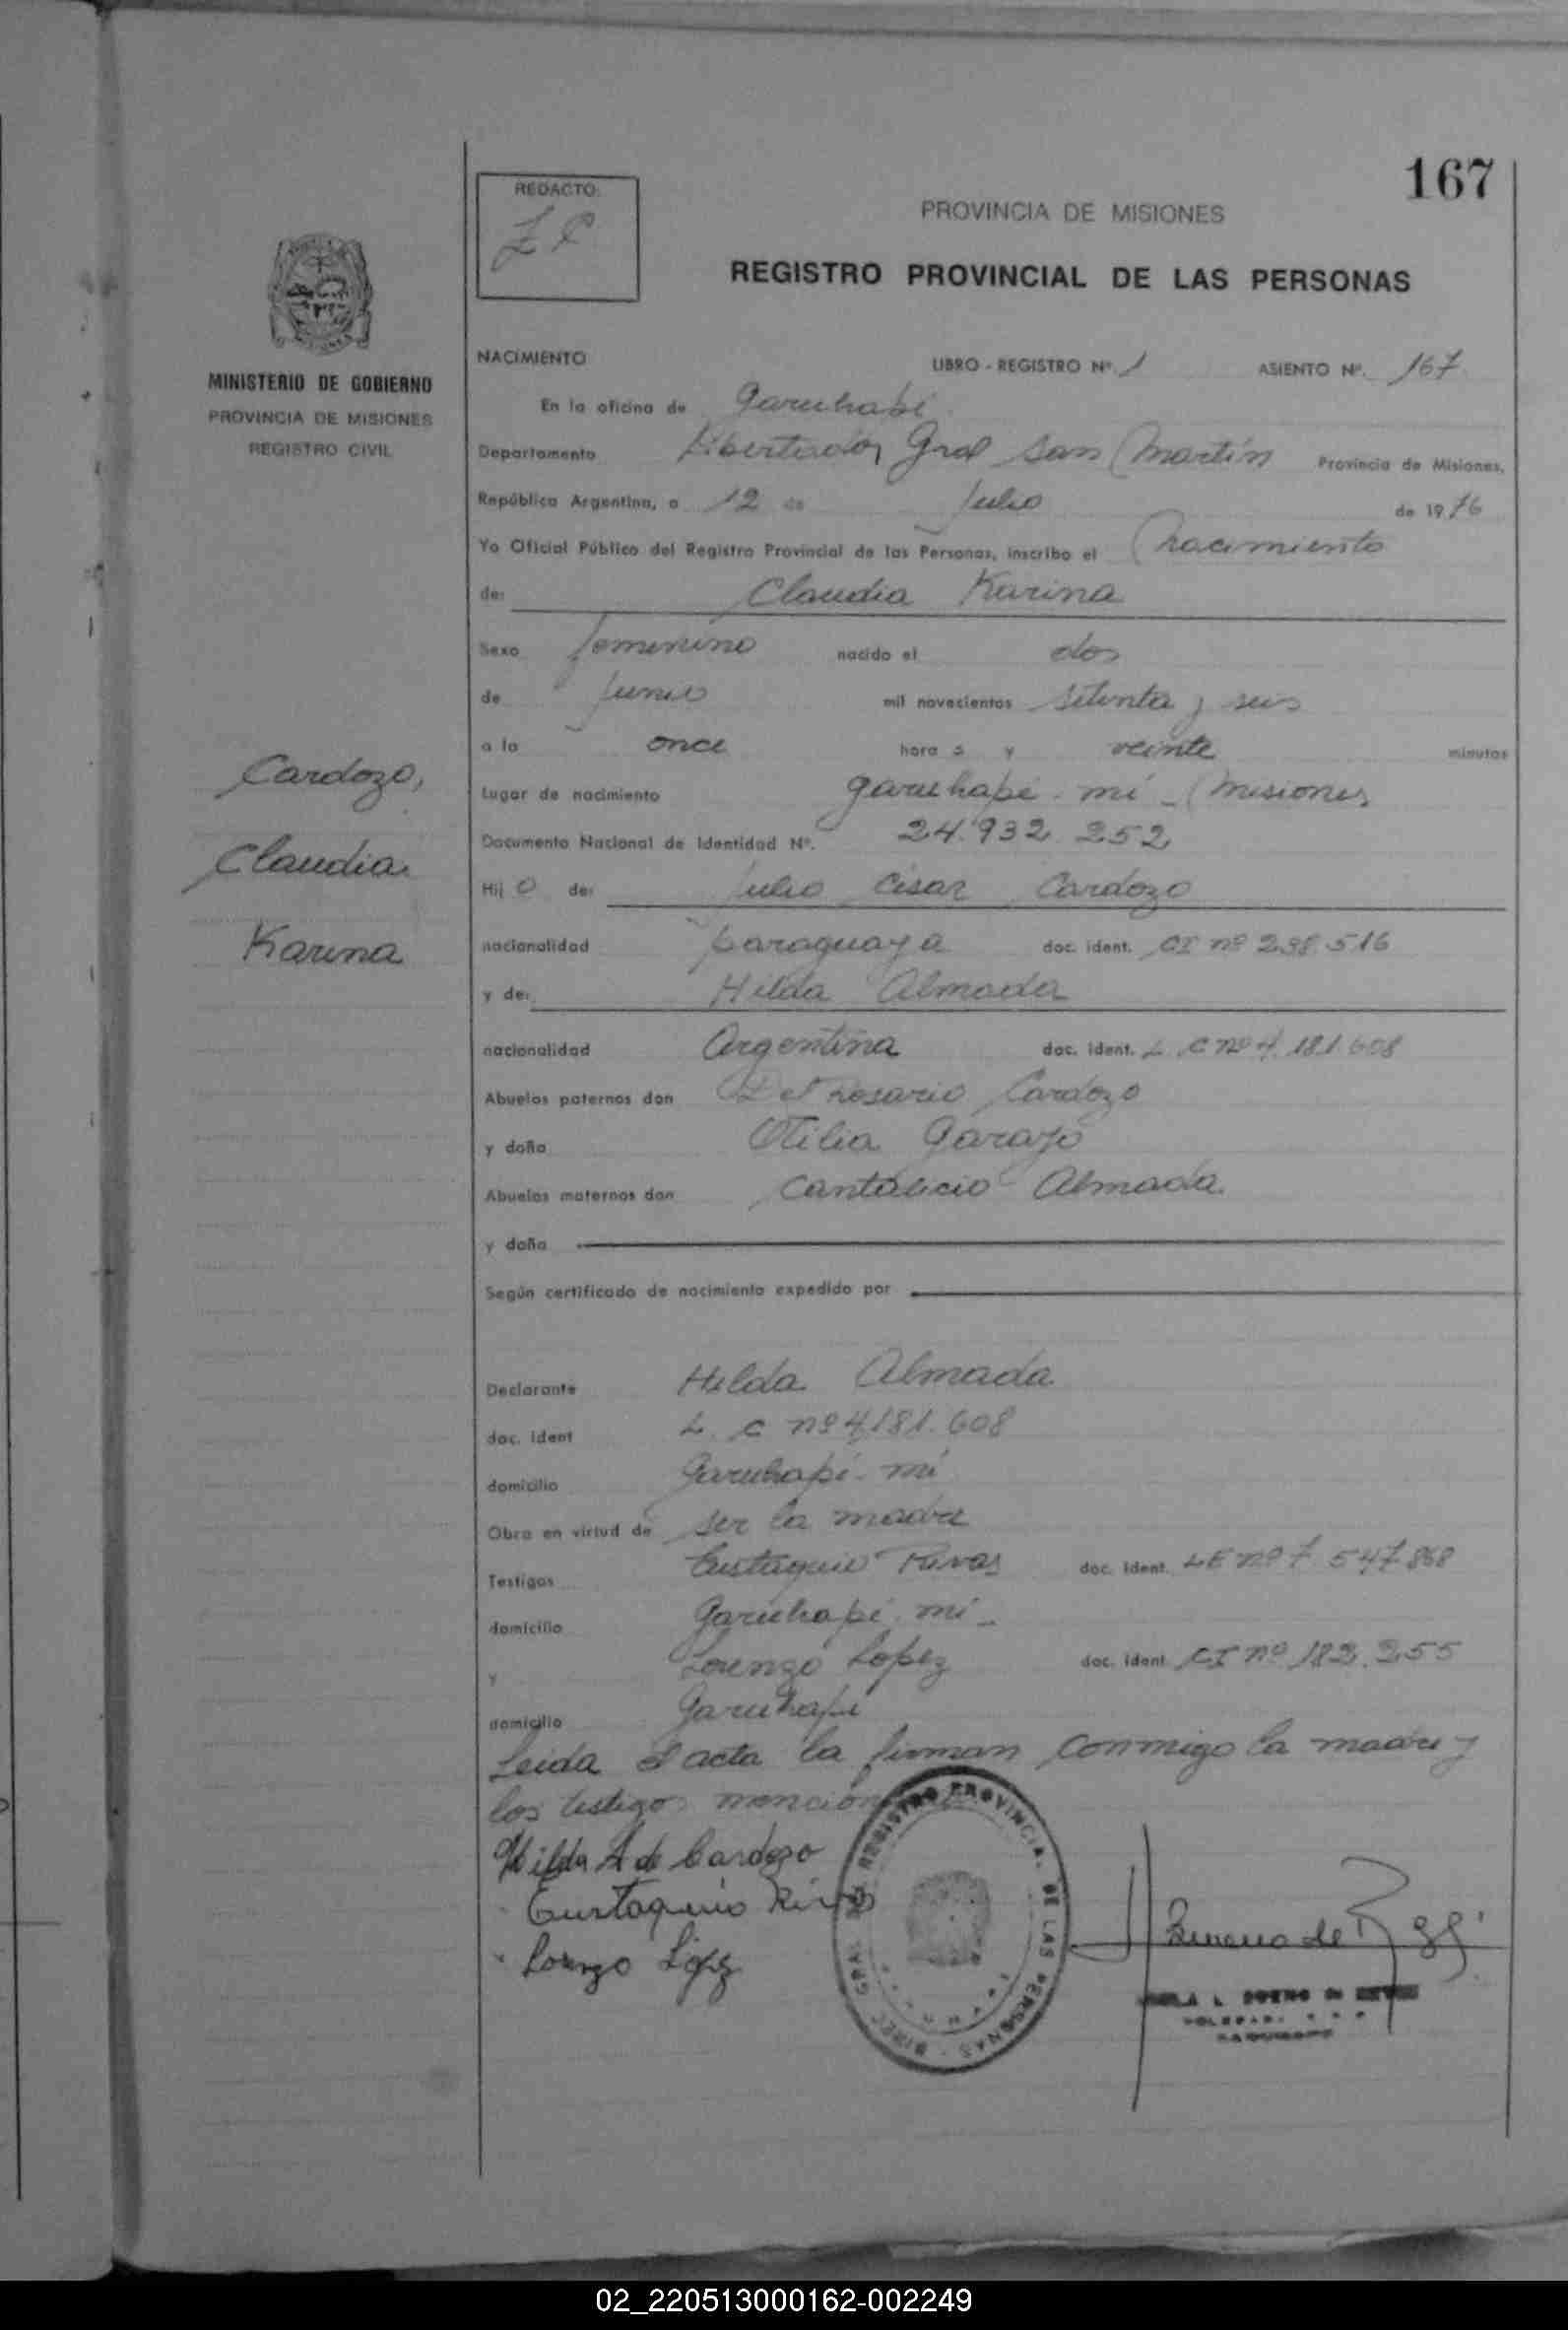 167
REDACTO:
PROVINCIA DE MISIONES
REGISTRO PROVINCIAL DE LAS PERSONAS
MINISTERIO DE GOBIERNO
PROVINCIA DE MISIONES
REGISTRO CIVIL
Cardozo,
Claudia
Karina
NACIMIENTO LIBRO - REGISTRO Nº. 1 ASIENTO Nº. 167
En la oficina de Garuhapé
Departamento Libertador Gral San Martín Provincia de Misiones,
República Argentina, a 12 de Julio de 1976
Yo Oficial Público del Registro Provincial de las Personas, inscribo el nacimiento
de: Claudia Karina
Sexo femenino nacido el dos
de Junio mil novecientos setenta y seis
a la once hora s y veinte minutos
Lugar de nacimiento Garuhapé - mí - Misiones
Documento Nacional de Identidad Nº. 24.932.252
Hij o de: Julio César Cardozo
nacionalidad paraguaya doc. ident. CI nº 298.516
y de: Hilda Almada
nacionalidad Argentina doc. ident. L C nº 4.181.608
Abuelos paternos don Del Rosario Cardozo
y doña Otilia Garayo
Abuelos maternos don Cantalicio Almada
y doña
Según certificado de nacimiento expedido por
Declarante Hilda Almada
doc. ident L. C nº 4.181.608
domicilio Garuhapé - mí
Obra en virtud de ser la madre
Testigos Eustaquio Rivas doc. ident. LE nº 7.547.868
domicilio Garuhapé - mí -
y Lorenzo Lopez doc. ident CI nº 182.255
domicilio Garuhapé
Leida el acta la firman conmigo la madre y
los testigos
Hilda A de Cardozo
Eustaquio Rivas
Lorenzo López
REGISTRO PROVINCIAL DE LAS PERSONAS - DIREC. GRAL.
02_220513000162-002249